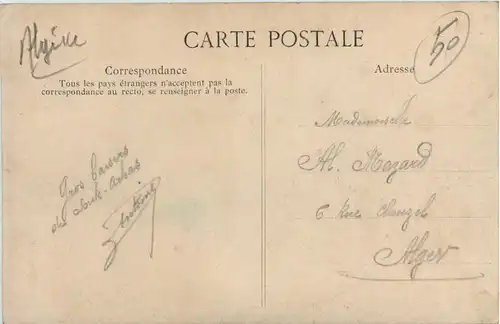 Algérie
50
CARTE POSTALE
Correspondance
Tous les pays étrangers n'acceptent pas la
correspondance au recto, se renseigner à la poste.
Gros baisers
de Souk-Ahras
Adresse
Mademoiselle
M. Mezard
6 Rue Changel
Alger